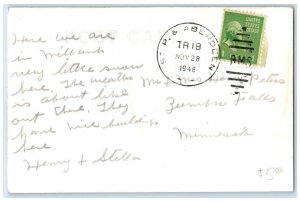 POST CARD
Here we are
in Milbank
very little snow
here. The weather
is about like
out there. They
have nice buildings
here.
Henry + Stella
ST. P. & ABERDEEN
TR 18
NOV 28
1948
R.M.S.
UNITED STATES
POSTAGE
Mr + Mrs Peters
Zumbro Falls
Minnesota
$5.00